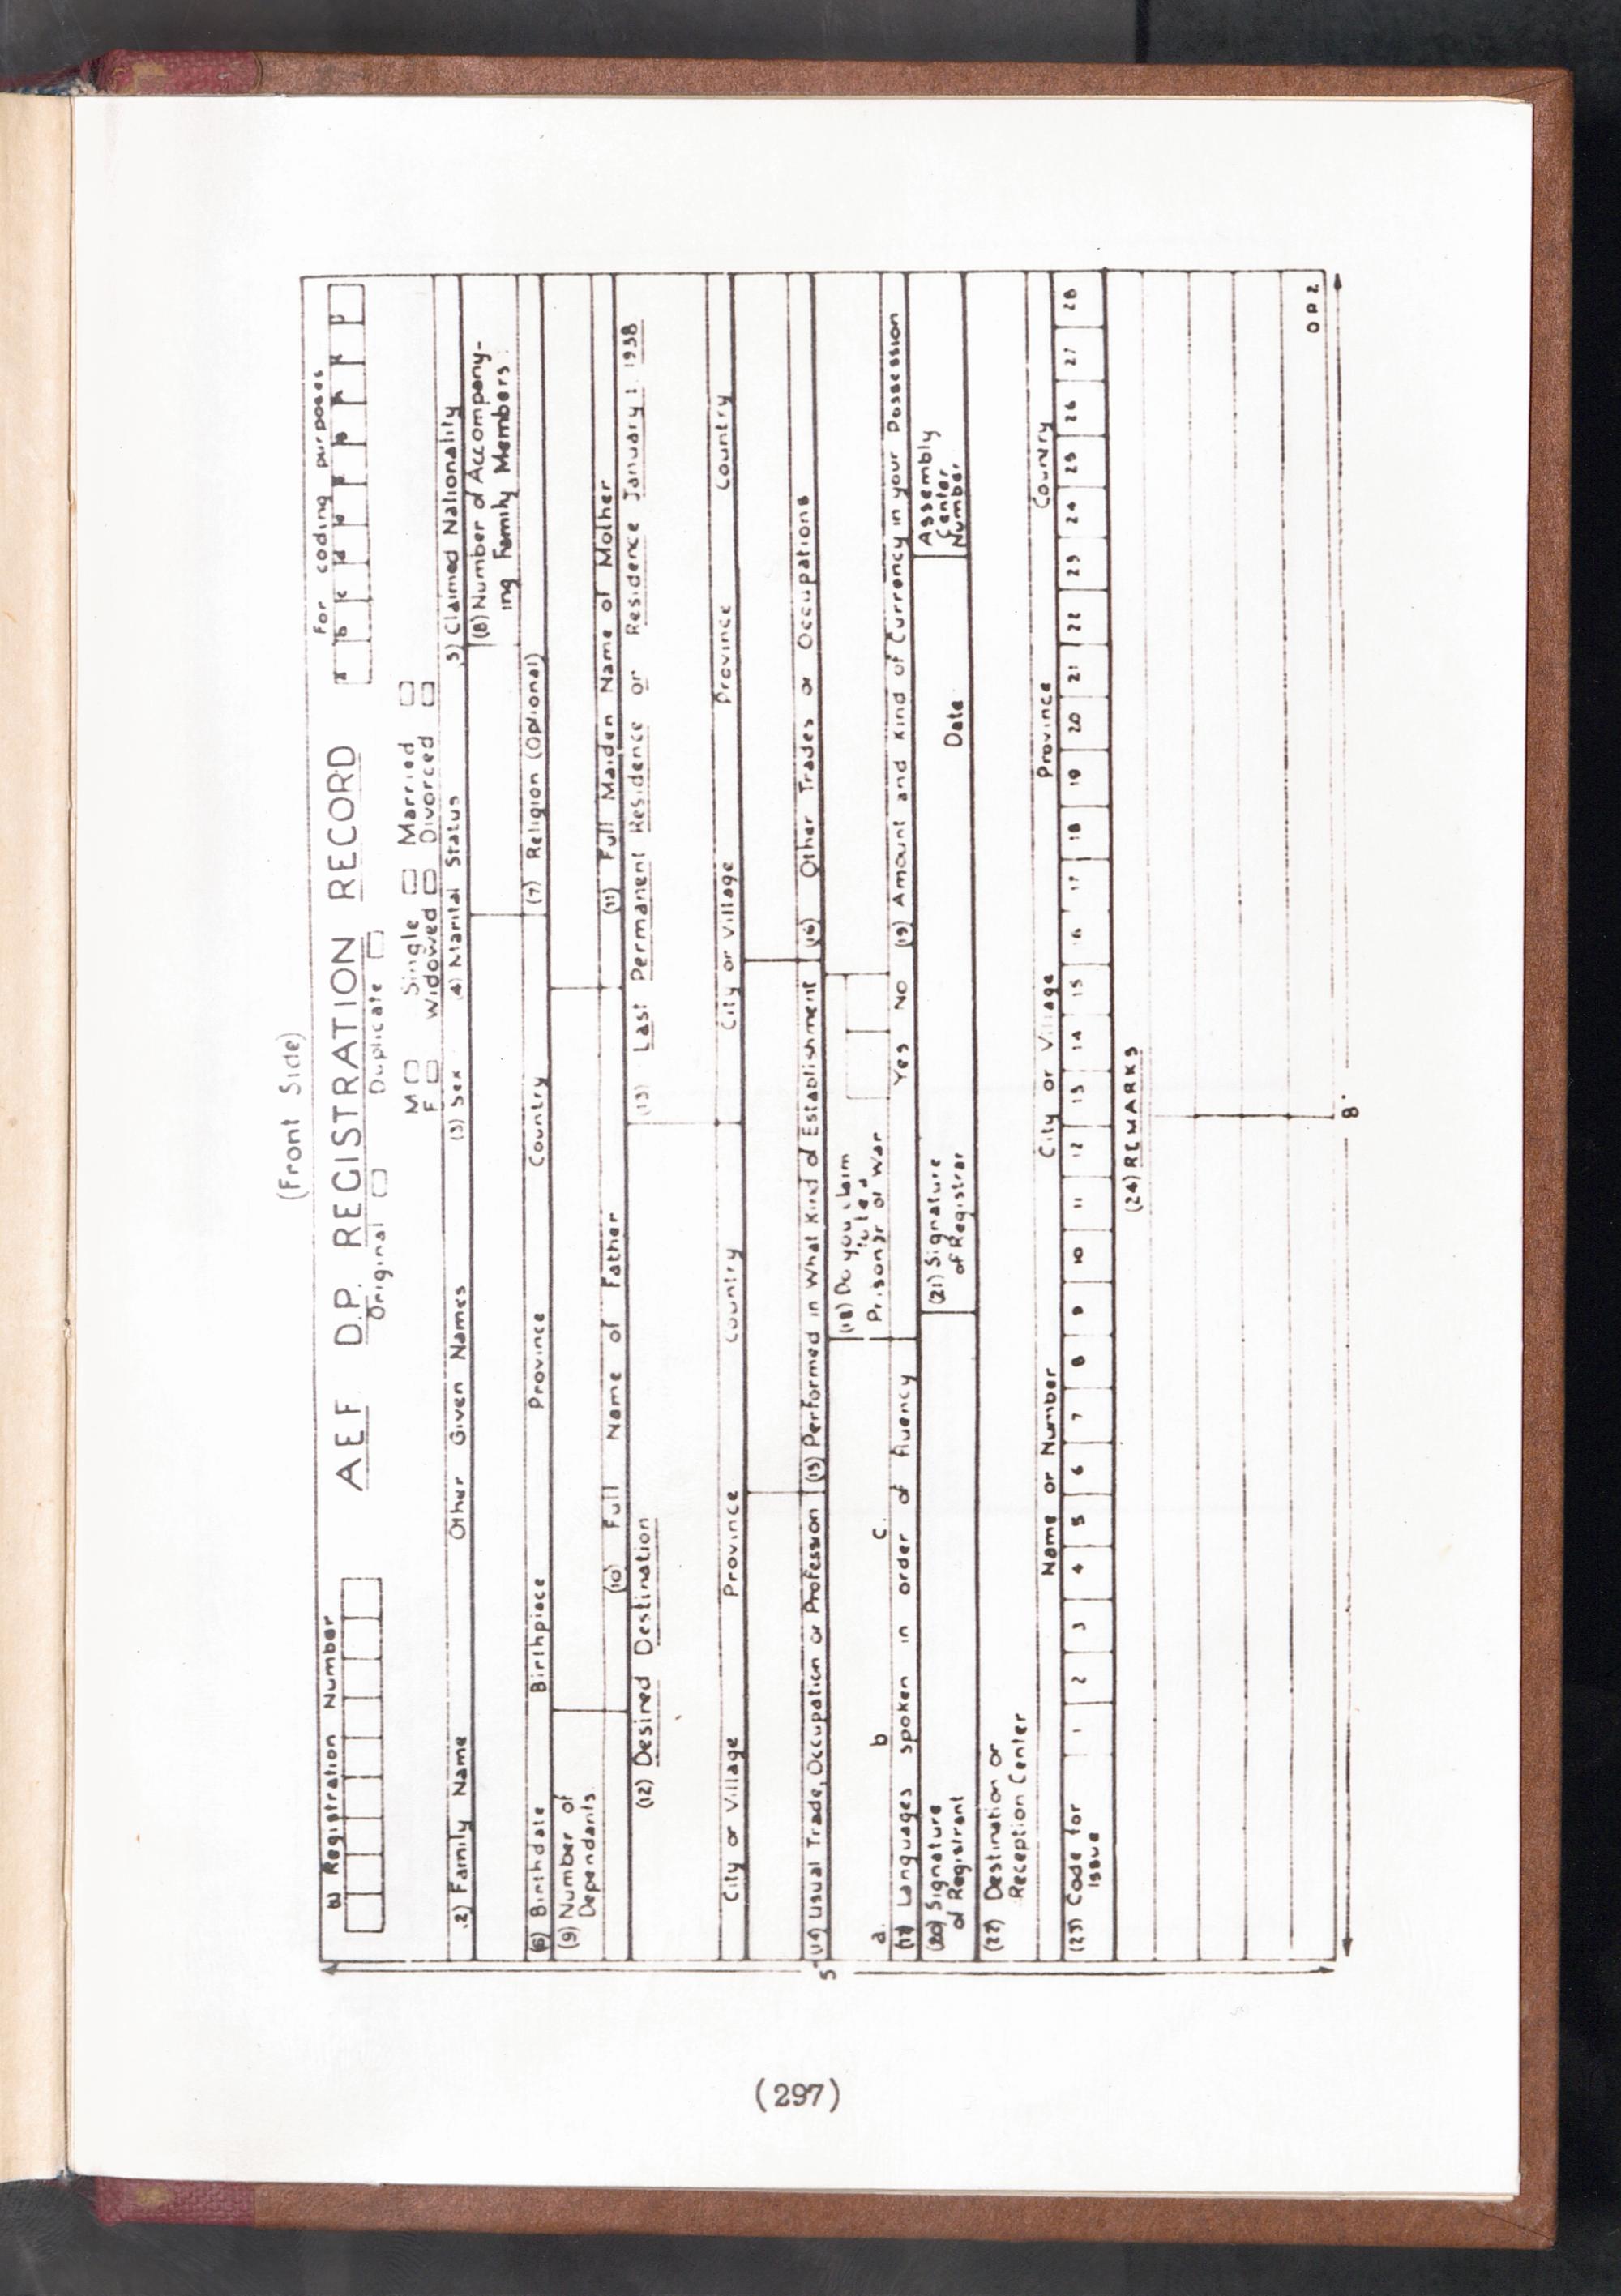 (Front Side)
(1) Registration Number
AEF D.P. REGISTRATION RECORD
For coding purposes
Original □ Duplicate □
M □ Single □ Married □
F □ Widowed □ Divorced □
(2) Family Name Other Given Names (3) Sex (4) Marital Status (5) Claimed Nationality
(8) Number of Accompany-
ing Family Members:
(6) Birthdate Birthplace Province Country (7) Religion (Optional)
(9) Number of
Dependants.
(10) Full Name of Father (11) Full Maiden Name of Mother
(12) Desired Destination (13) Last Permanent Residence or Residence January 1 1938
City or Village Province Country City or Village Province Country
(14) Usual Trade, Occupation or Profession (15) Performed in What Kind of Establishment (16) Other Trades or Occupations
a. b c. (18) Do you claim
to be a
Prisoner of War
(17) Languages spoken in order of fluency Yes No (19) Amount and Kind of Currency in your Possession
(20) Signature
of Registrant
(21) Signature
of Registrar
Date
Assembly
Center
Number
(22) Destination or
Reception Center
Name or Number City or Village Province Country
(23) Code for
Issue
1 2 3 4 5 6 7 8 9 10 11 12 13 14 15 16 17 18 19 20 21 22 23 24 25 26 27 28
(24) REMARKS
DP2
5"
8"
(297)